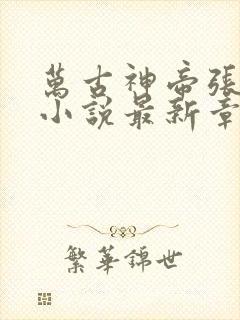 萬古神帝張
小說最新章
繁華錦世